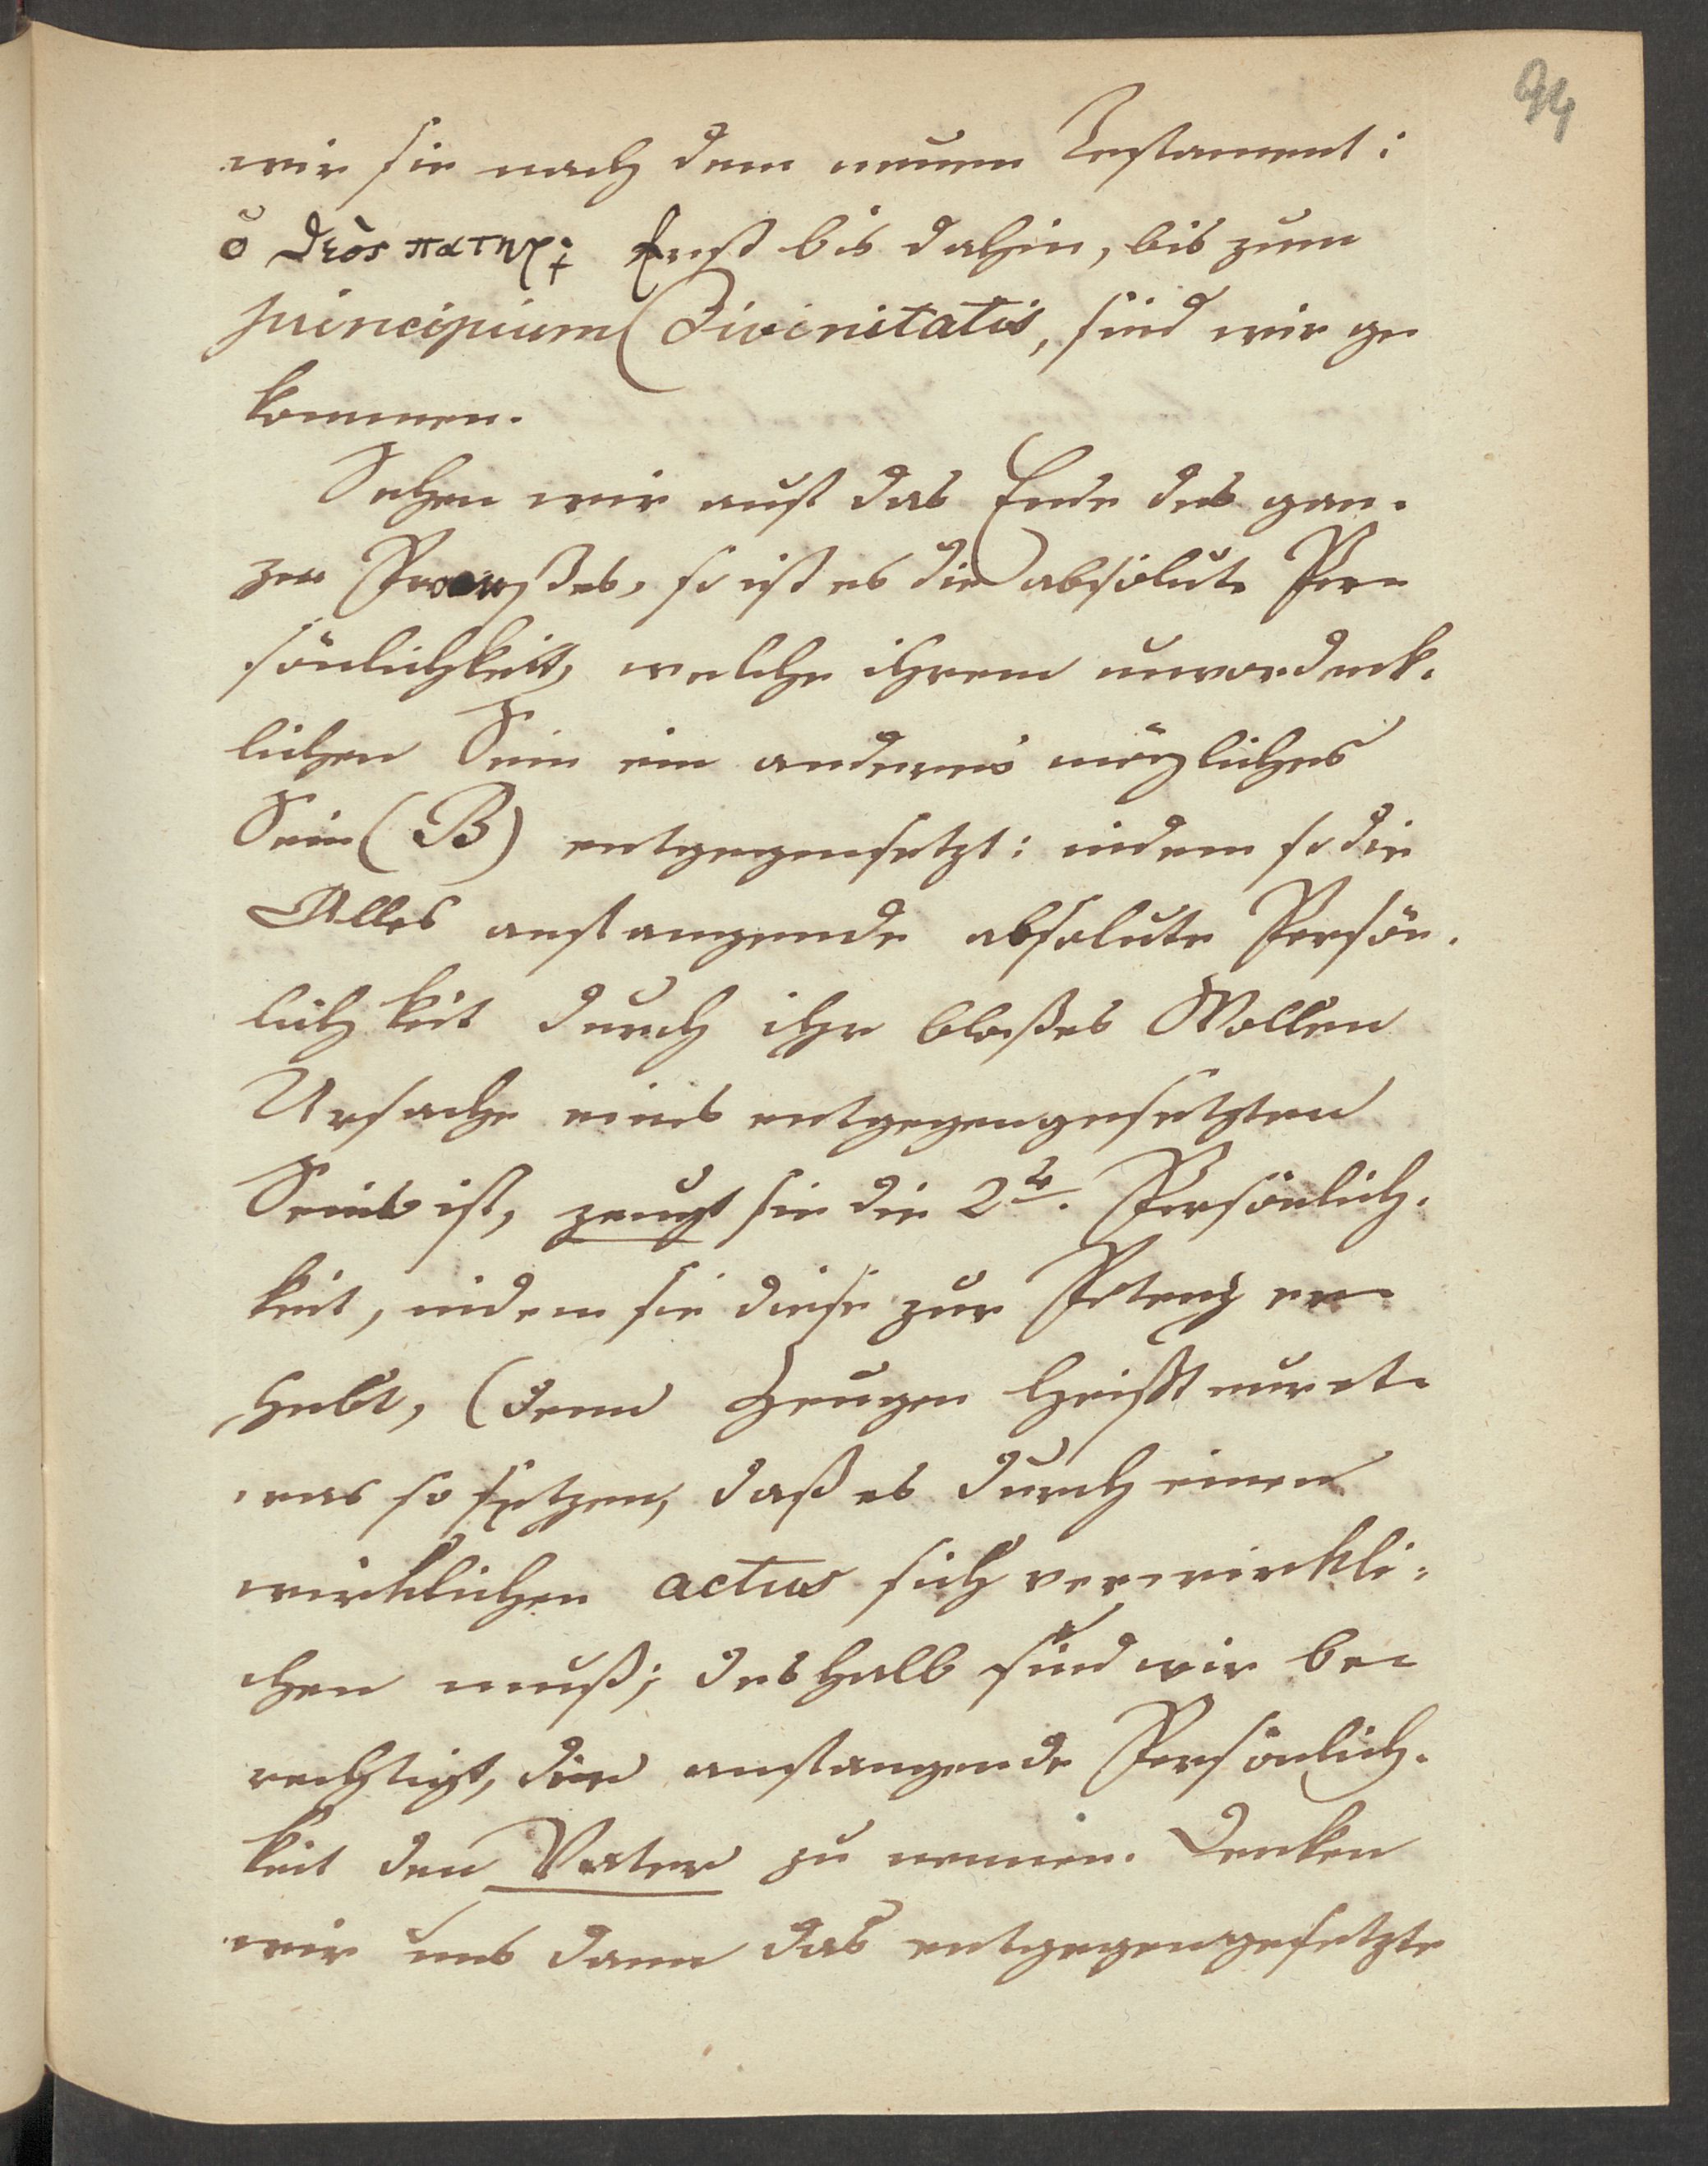 94
wir sie nach dem neuen Testament:
ὁ θεὸς πατηρ; Erst bis dahin, bis zum
principium Divinitatis, sind wir ge
kommen.
Sehen wir auf das Ende des gan-
zen Processes, so ist es die absolute Per-
sönlichkeit, welche ihrem unvordenk-
lichen Sein ein anderes mögliches
Sein (B) entgegensetzt: indem so die
Alles anfangende absolute Persön-
lichkeit durch ihr bloßes Wollen
Ursache eines entgegengesetzten
Seins ist, zeugt sie die 2te. Persönlich-
keit, indem sie diese zur Potenz er-
hebt, (denn Zeugen heißt nur et-
was so setzen, daß es durch einen
wirklichen actus sich verwirkli-
chen muß; deshalb sind wir be-
rechtigt, die anfangende Persönlich-
keit den Vater zu nennen. Denken
wir uns dann das entgegengesetzte